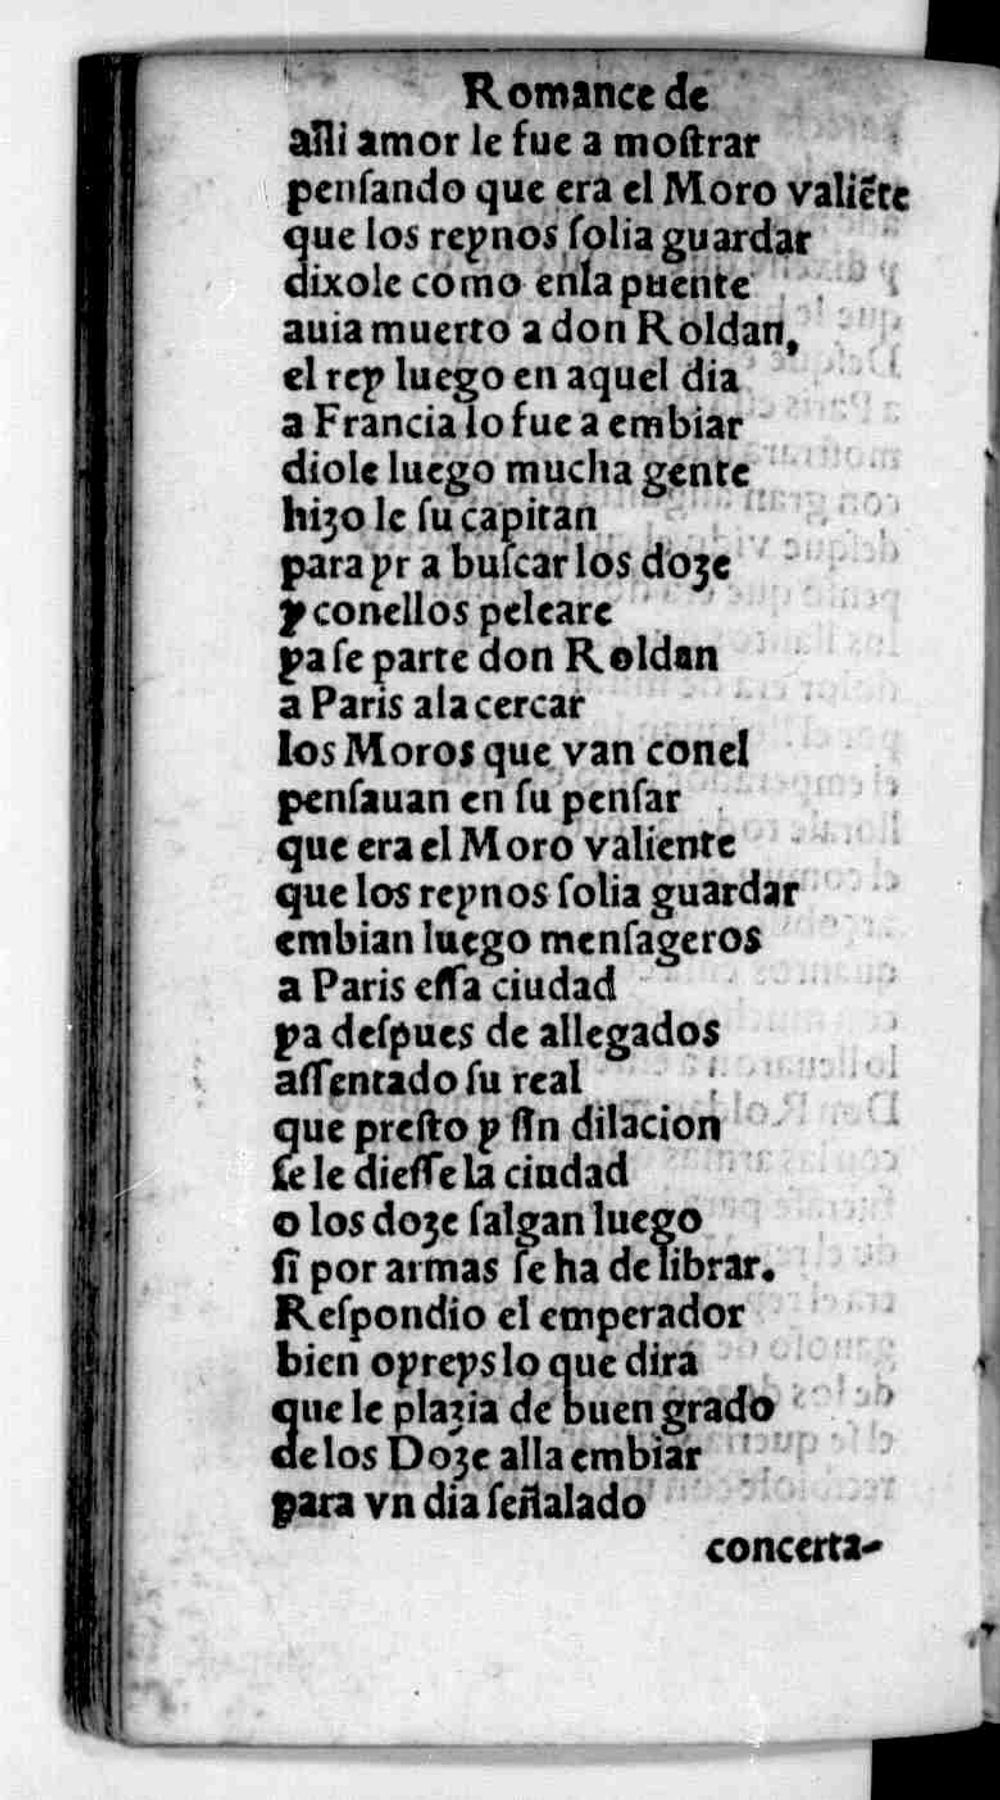 Romance de
alli amor le fue a moſtrar
penſando que era el Moro valiẽte
que los reynos ſolia guardar
dixole como enla puente
auia muerto a don Roldan,
el rey luego en aquel dia
a Francia lo fue a embiar
diole luego mucha gente
hizo le ſu capitan
para yr a buſcar los doze
y conellos peleare
ya ſe parte don Roldan
a Paris ala cercar
los Moros que van conel
penſauan en ſu penſar
que era el Moro valiente
que los reynos ſolia guardar
embian luego menſageros
a Paris eſſa ciudad
ya deſpues de allegados
aſſentado ſu real
que preſto y ſin dilacion
ſe le dieſſe la ciudad
o los doze ſalgan luego
ſi por armas ſe ha de librar.
Reſpondio el emperador
bien oyreys lo que dira
que le plazia de buen grado
de los Doze alla embiar
para vn dia ſeñalado
concerta-